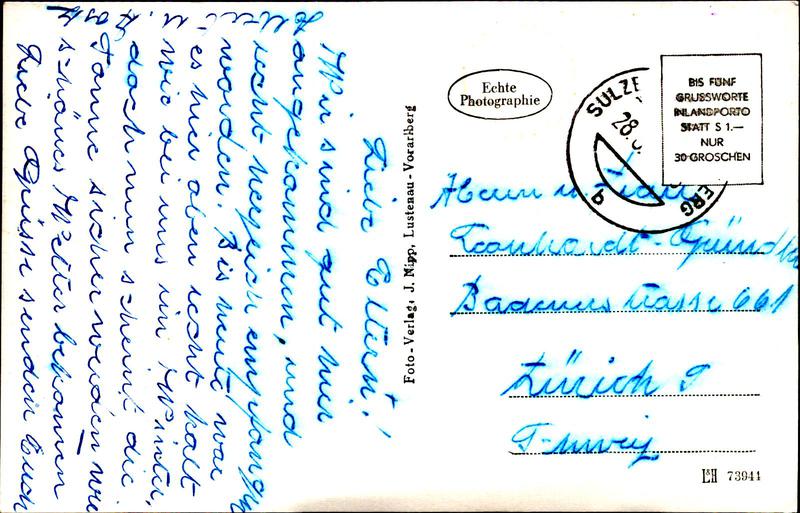 Liebe Eltern!
Wir sind gut hier
angekommen, und
recht herzlich empfangen
worden. Bis heute war
es hier oben recht kalt
wie bei uns im Winter,
doch nun scheint die
Sonne sicher werden wir
schönes Wetter bekommen
Liebe Grüsse senden Euch
Foto-Verlag: J. Nipp, Lustenau - Vorarlberg
Echte
Photographie
SULZB
28.
ERG
b
BIS FÜNF
GRUSSWORTE
INLANDPORTO
STATT S 1.—
NUR
30 GROSCHEN
Herrn u. Frau
Leonhardt-Gründ
Badenerstrasse 661
Zürich 9
Schweiz
L&H 73941